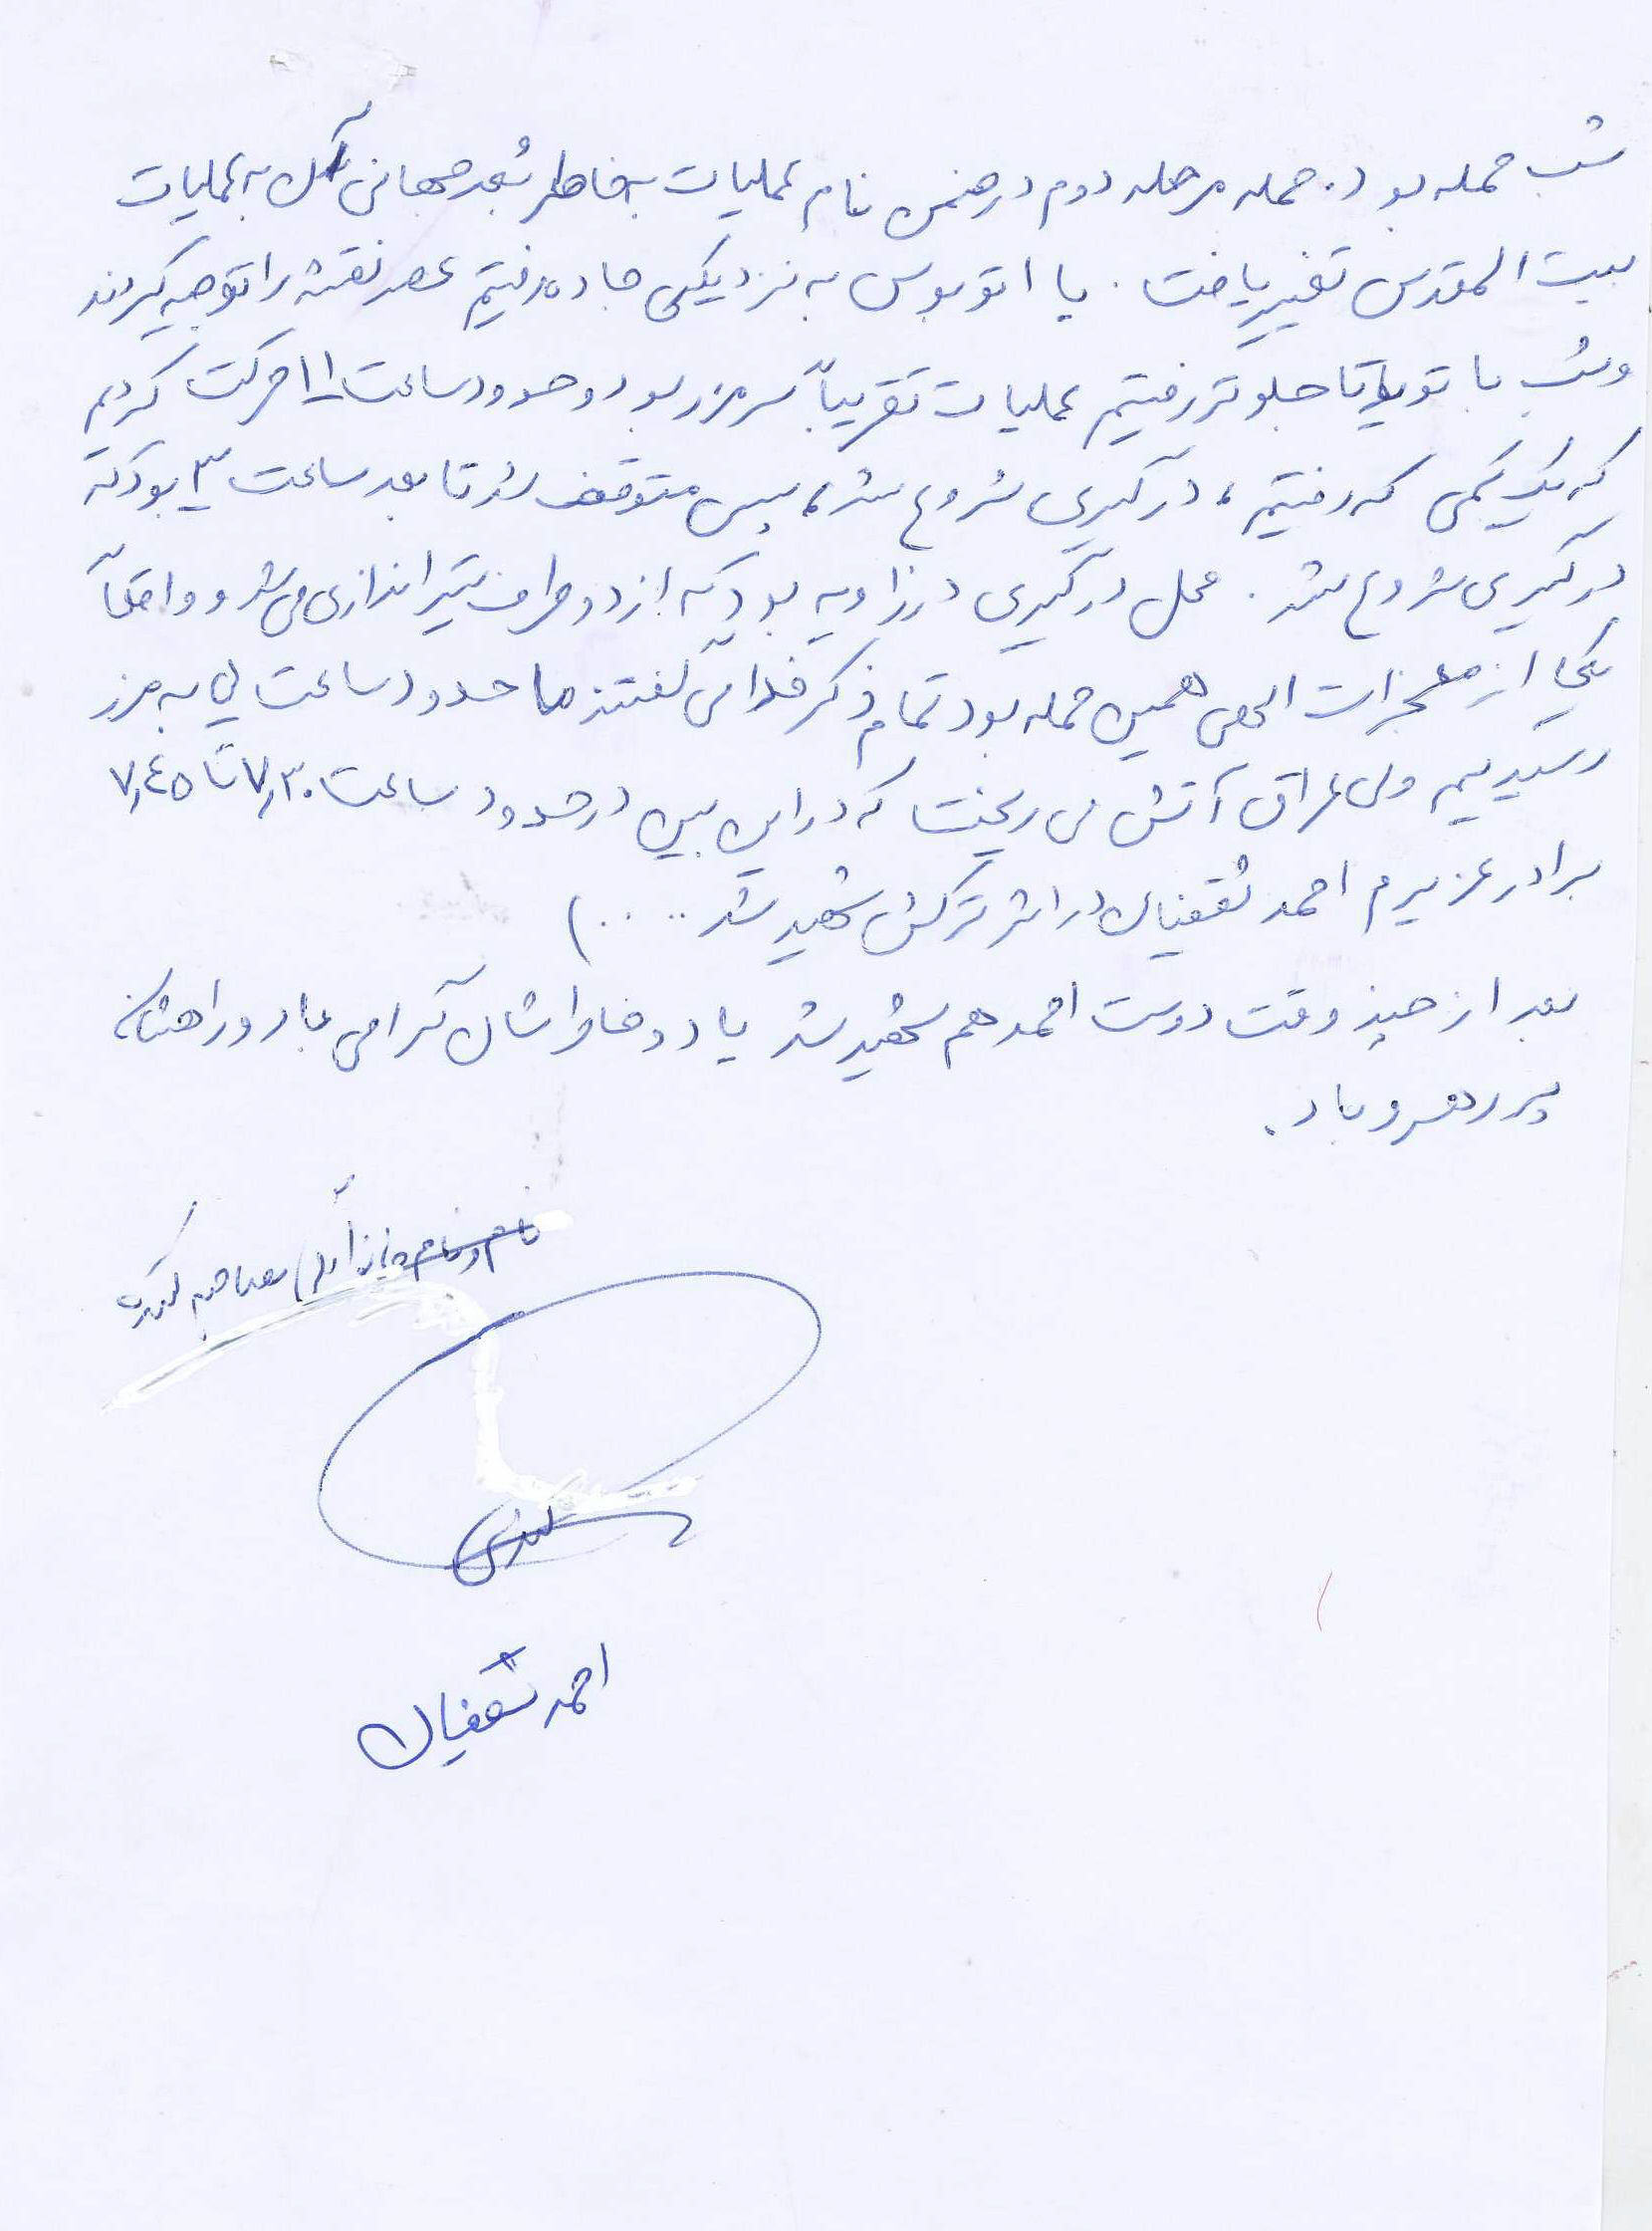 شب حمله بود. حمله مرحله دوم در ضمن نام عملیات به خاطر بُعد جهانی آن به عملیات
بیت المقدس تغییر یافت. با اتوبوس به نزدیکی جاده رفتیم عصر نقشه را توجیه کردند
و شب با تویوتا جلوتر رفتیم عملیات تقریباً سر مرز بود و حدود ساعت ۱۱ حرکت کردیم
که یک کمی که رفتیم، درگیری شروع شد، سپس متوقف شد تا بعد ساعت ۳ بود که
درگیری شروع شد. محل درگیری در زاویه بود که از دو طرف تیراندازی می شد و واقعاً
یکی از معجزات الهی همین حمله بود تمام ذکر خدا می گفتند ما حدود ساعت به مرز
رسیدیم ولی عراق آتش می ریخت که در این بین در حدود ساعت ۷٫۳۰ تا ۷٫۴۵
برادر عزیزم احمد ثقفیان در اثر ترکش شهید شد ....)
بعد از چند وقت دوست احمد هم شهید شد یاد و خاطراشان گرامی باد و راهشان
پر رهرو باد.
نام و نام
احمد ثقفیان